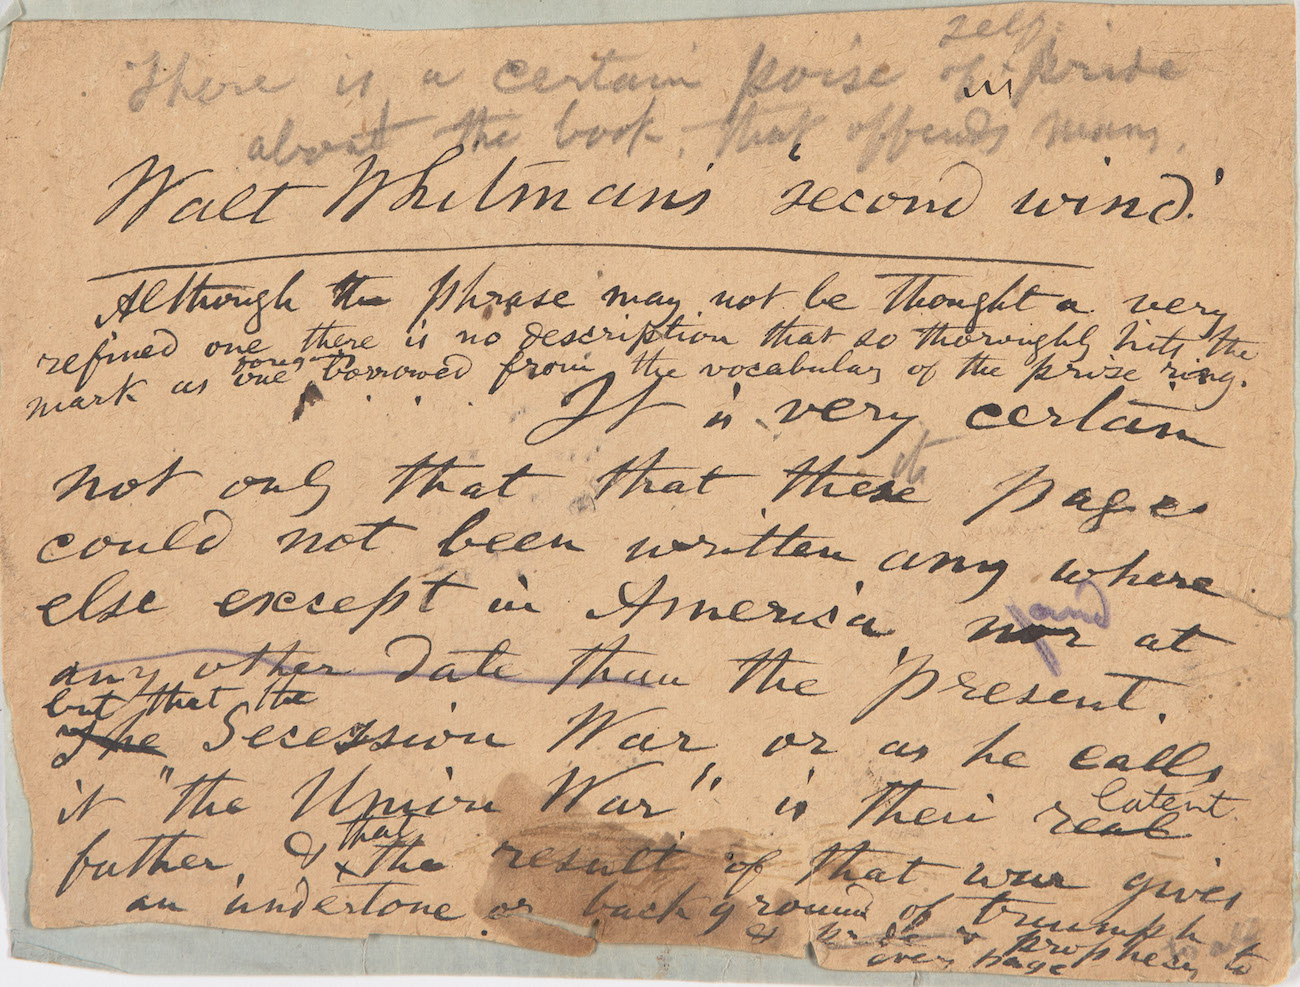 self
There is a certain poise of pride
about the book, that offends many.
Walt Whitman's 'second wind.'
Although the phrase may not be thought a very
refined one there is no description that so thoroughly hits the
mark as one borrowed from the vocabulary of the prize ring.
. . . It is very certain
not only that that these pages
could not been written any where
else except in America, nor at
and
any other date than the present.
but that the
The Secession War or as he calls
it "the Union War" is their real
latent
father, & the result of that war gives
that
an undertone or background of triumph
& prophecy to
every page